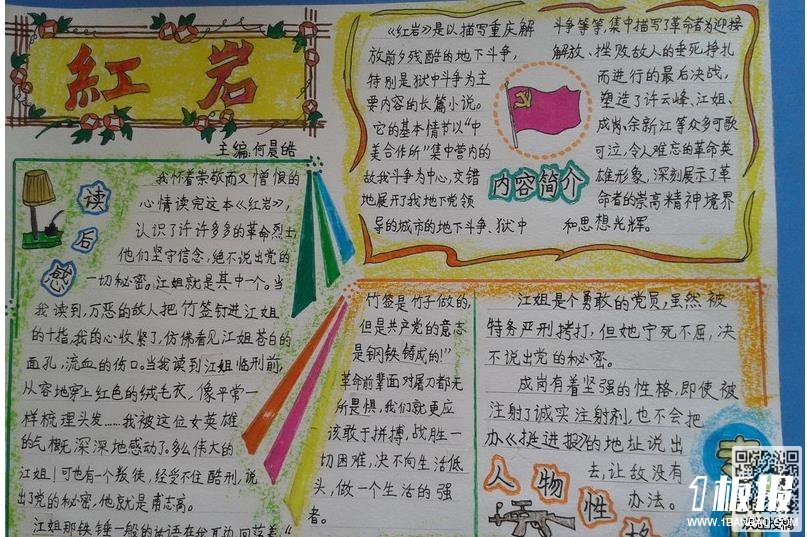 紅岩
主编:何晨皓
《红岩》是以描写重庆解
放前夕残酷的地下斗争,
特别是狱中斗争为主
要内容的长篇小说。
它的基本情节以“中
美合作所”集中营内的
敌我斗争为中心,交错
地展开了我地下党领
导的城市的地下斗争、狱中
斗争等等,集中描写了革命者为迎接
解放、挫败敌人的垂死挣扎
而进行的最后决战,
塑造了许云峰、江姐、
成岗、余新江等众多可歌
可泣,令人难忘的革命英
雄形象,深刻展示了革
命者的崇高精神境界
和思想光辉。
内容简介
读后感
我怀着崇敬而又憎恨的
心情读完这本《红岩》,
认识了许许多多的革命烈士
他们坚守信念,绝不说出党的
一切秘密。江姐就是其中一个。当
我读到,万恶的敌人把竹签钉进江姐
的十指,我的心收紧了,仿佛看见江姐苍白的
面孔,流血的伤口。当我读到江姐临刑前,
从容地穿上红色的绒毛衣,像平常一
样梳理头发……我被这位女英雄
的气概深深地感动了。多么伟大的
江姐!可也有个叛徒,经受不住酷刑,说
出了党的秘密,他就是甫志高。
江姐那铁锤一般的话语在我耳边回荡着:“
竹签是竹子做的,
但是共产党的意志
是钢铁铸成的!”
革命前辈面对屠刀都无
所畏惧,我们就更应
该敢于拼搏,战胜一
切困难,决不向生活低
头,做一个生活的强
者。
江姐是个勇敢的党员,虽然被
特务严刑拷打,但她宁死不屈,决
不说出党的秘密。
成岗有着坚强的性格,即使被
注射了诚实注射剂,也不会把
办《挺进报》的地址说出
去,让敌没有
办法。
人物性格
1板报
WWW.1BANBAO.COM